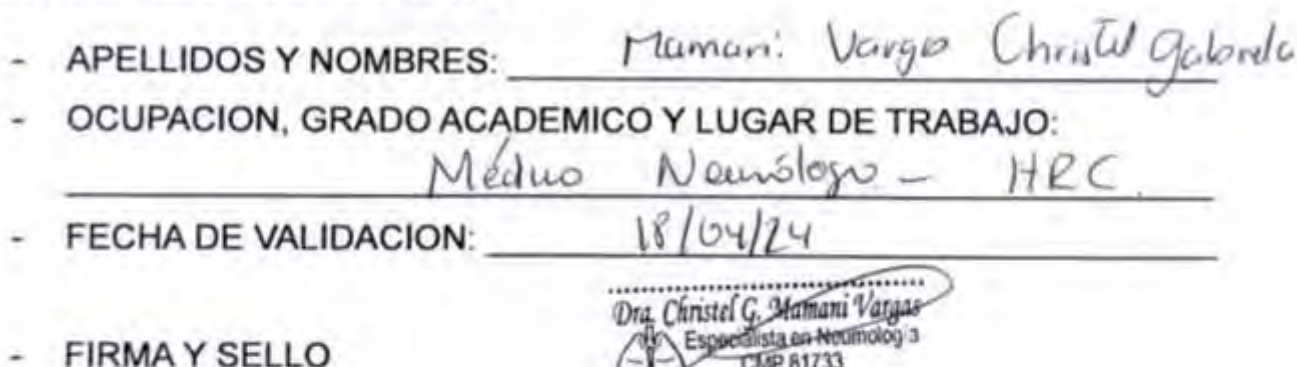 - APELLIDOS Y NOMBRES: Mamani Vargas Christel Gabriela
- OCUPACION, GRADO ACADEMICO Y LUGAR DE TRABAJO:
Médico Neumólogo - HRC.
- FECHA DE VALIDACION: 18/04/24
Dra. Christel G. Mamani Vargas
Especialista en Neumología
CMP 81733
- FIRMA Y SELLO